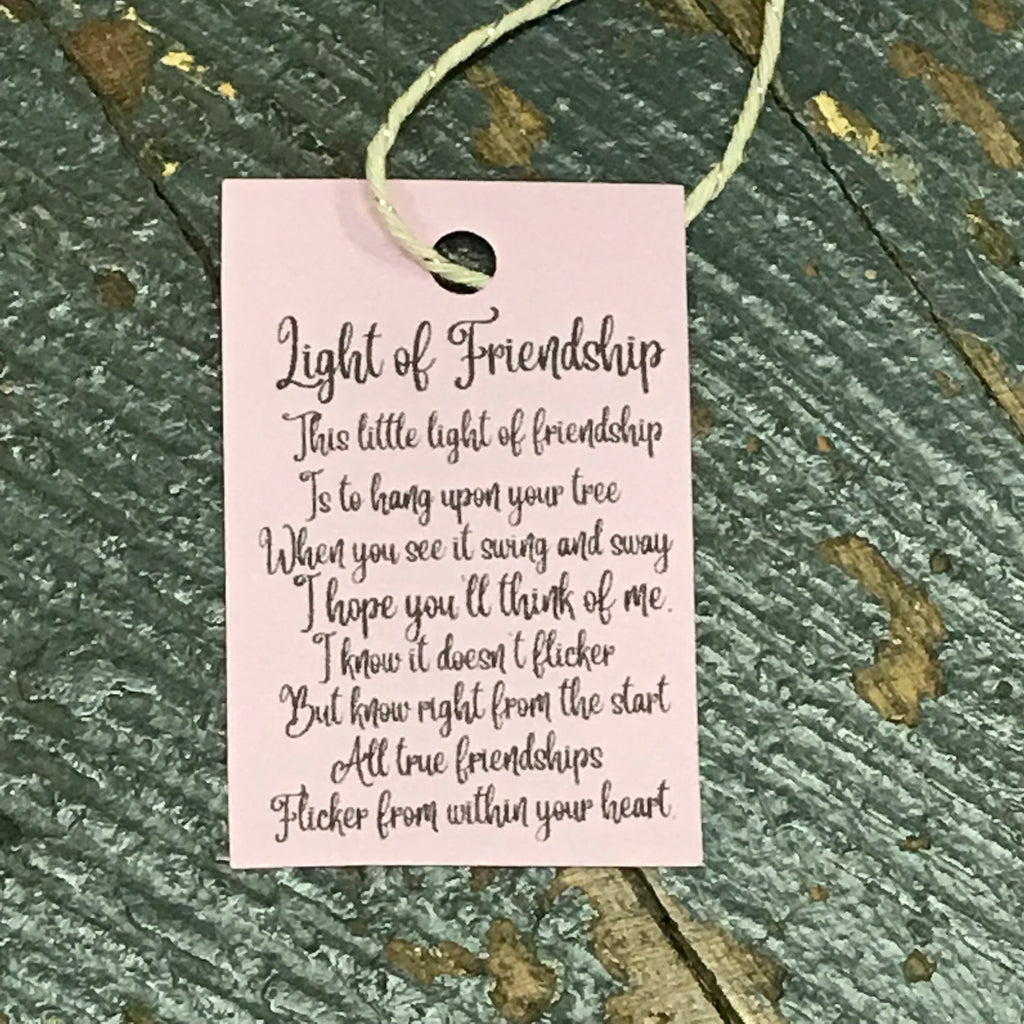 Light of Friendship
This little light of friendship
Is to hang upon your tree
When you see it swing and sway
I hope you'll think of me.
I know it doesn't flicker
But know right from the start
All true friendships
Flicker from within your heart.